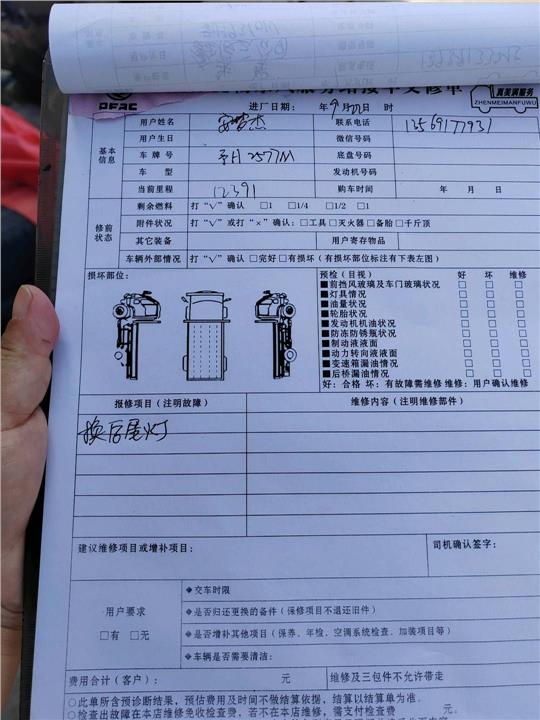 真美满服务
ZHENMEIMANFUWU
进厂日期： 年9月22日 时
基本信息
用户姓名 联系电话 13569177931
用户生日 微信号码
车牌号 2577M 底盘号码
车型 发动机号码
当前里程 12391 购车时间 年 月 日
修前状态
剩余燃料 打“√”确认 □1 □1/4 □1/2 □1
附件状况 打“√”或打“×”确认：□工具□灭火器□备胎□千斤顶
其它装备 用户寄存物品
车辆外部情况 打“√”确认□完好□有损坏（有损坏部位标注有下表左图）
损坏部位：
预检（目视） 好 坏 维修
■前挡风玻璃及车门玻璃状况 □ □ □
■灯具情况 □ □ □
■油量状况 □ □ □
■轮胎状况 □ □ □
■发动机机油状况 □ □ □
■防冻防锈瓶状况 □ □ □
■制动液液面 □ □ □
■动力转向液液面 □ □ □
■变速箱漏油情况 □ □ □
■后桥漏油情况 □ □ □
好：合格 坏：有故障需维修 维修：用户确认维修
报修项目（注明故障） 维修内容（注明维修部件）
换后尾灯
建议维修项目或增补项目： 司机确认签字：
用户要求
□有 □无
◆交车时限
◆是否归还更换的备件（保修项目不退还旧件）
◆是否增补其他项目（保养、年检、空调系统检查、加装项目等）
◆车辆是否需要清洁：
费用合计（客户）： 元 维修及三包件不允许带走
○此单所含预诊断结果，预估费用及时间不做结算依据，结算以结算单为准。
○检查出故障在本店维修免收检查费，若不在本店维修，需支付检查费 元。